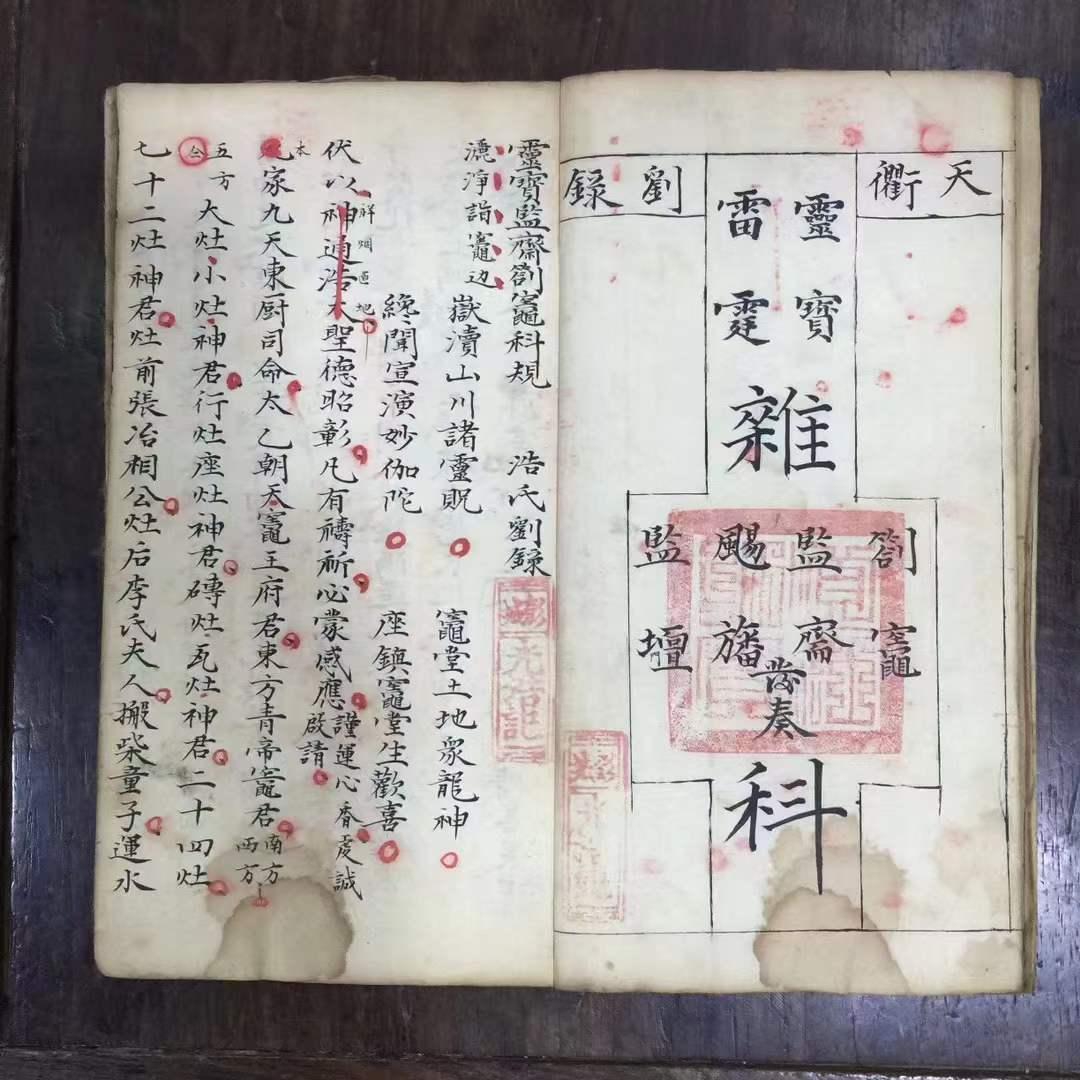 天衢
靈寶
雷霆
劉錄
雜
劄竈
監齋
颺旛
監壇
發奏
科
靈寶監齋劄竈科規 浩氏劉錄
灑淨詣竈边
嶽瀆山川諸靈貺 竈堂土地衆龍神
纔聞宣演妙伽陀 座鎮竈堂生歡喜
伏以神通浩大聖德昭彰凡有禱祈必蒙感應謹運心香虔誠啟請
家九天東厨司命太乙朝天竈王府君東方青帝竈君南方西方
五方大灶小灶神君行灶座灶神君磚灶瓦灶神君二十四灶
七十二灶神君灶前張冶相公灶后李氏夫人搬柴童子運水